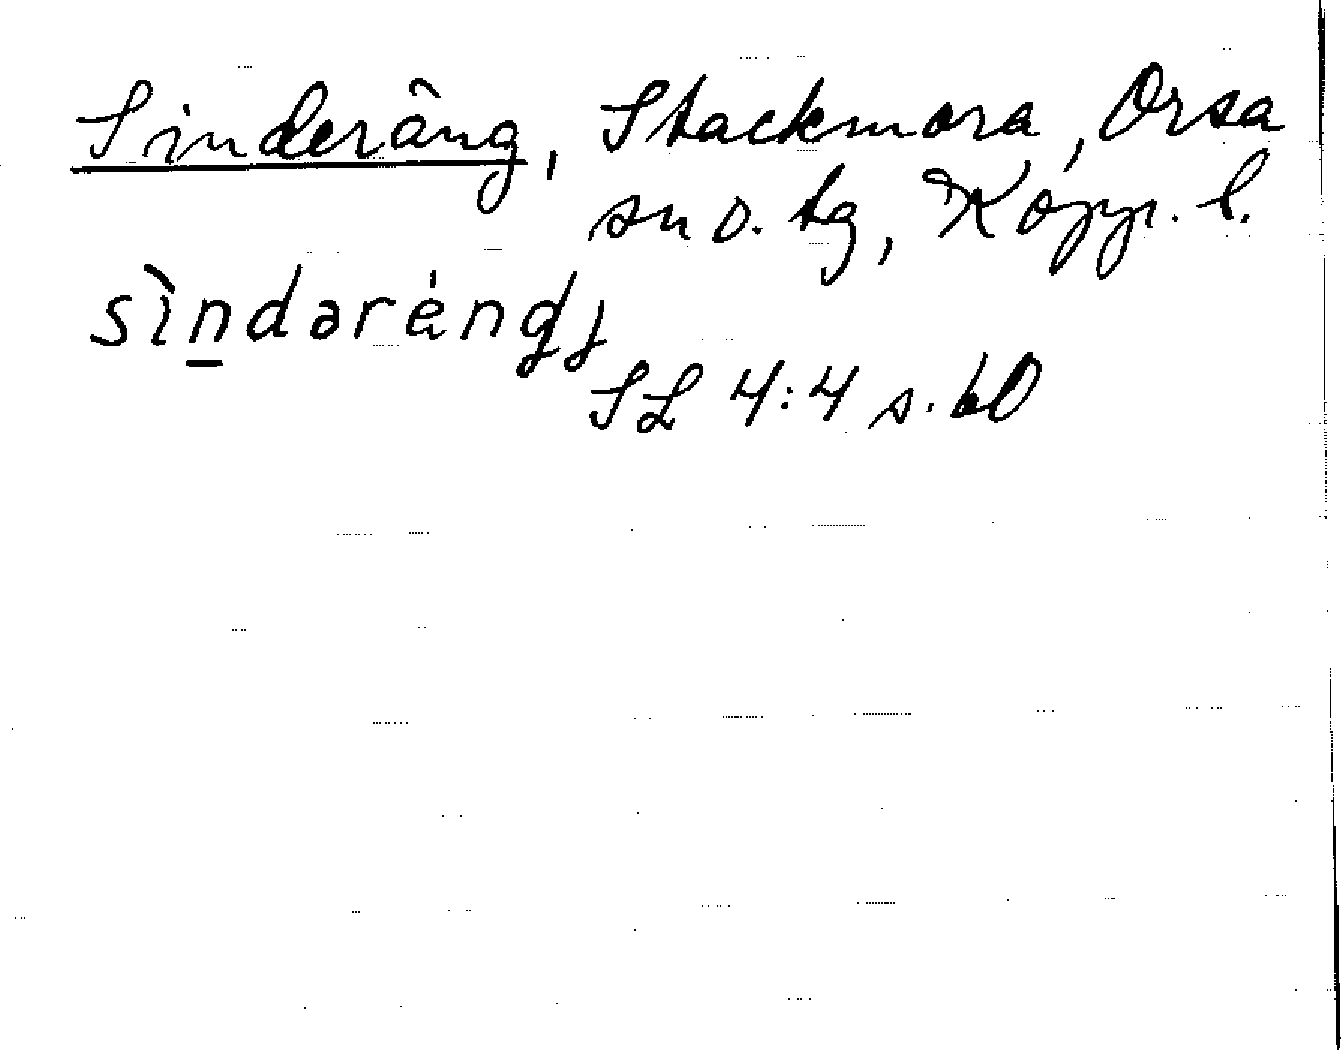 Sinderäng, Stackmora, Orsa
sn o. tg, Kopp. l.
sìndəréŋgj
SL 4:4 s. 60